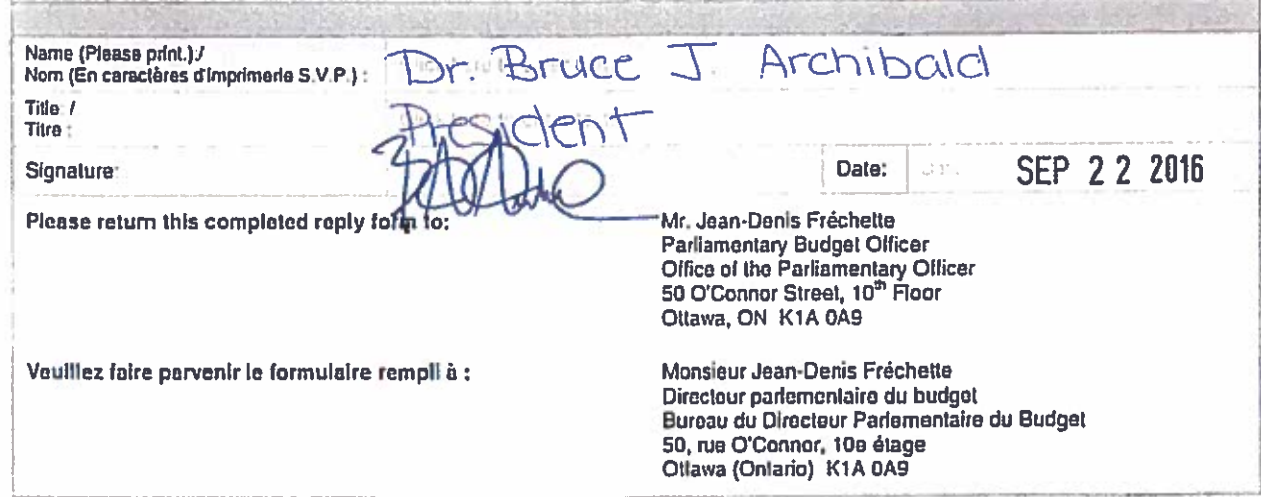 Name (Please print.) /
Nom (En caractères d'imprimerie S.V.P.) : Dr. Bruce J. Archibald
Title /
Titre : President
Signature:
Date: SEP 22 2016
Please return this completed reply form to: Mr. Jean-Denis Fréchette
Parliamentary Budget Officer
Office of the Parliamentary Officer
50 O'Connor Street, 10th Floor
Ottawa, ON K1A 0A9
Veuillez faire parvenir le formulaire rempli à : Monsieur Jean-Denis Fréchette
Directeur parlementaire du budget
Bureau du Directeur Parlementaire du Budget
50, rue O'Connor, 10e étage
Ottawa (Ontario) K1A 0A9